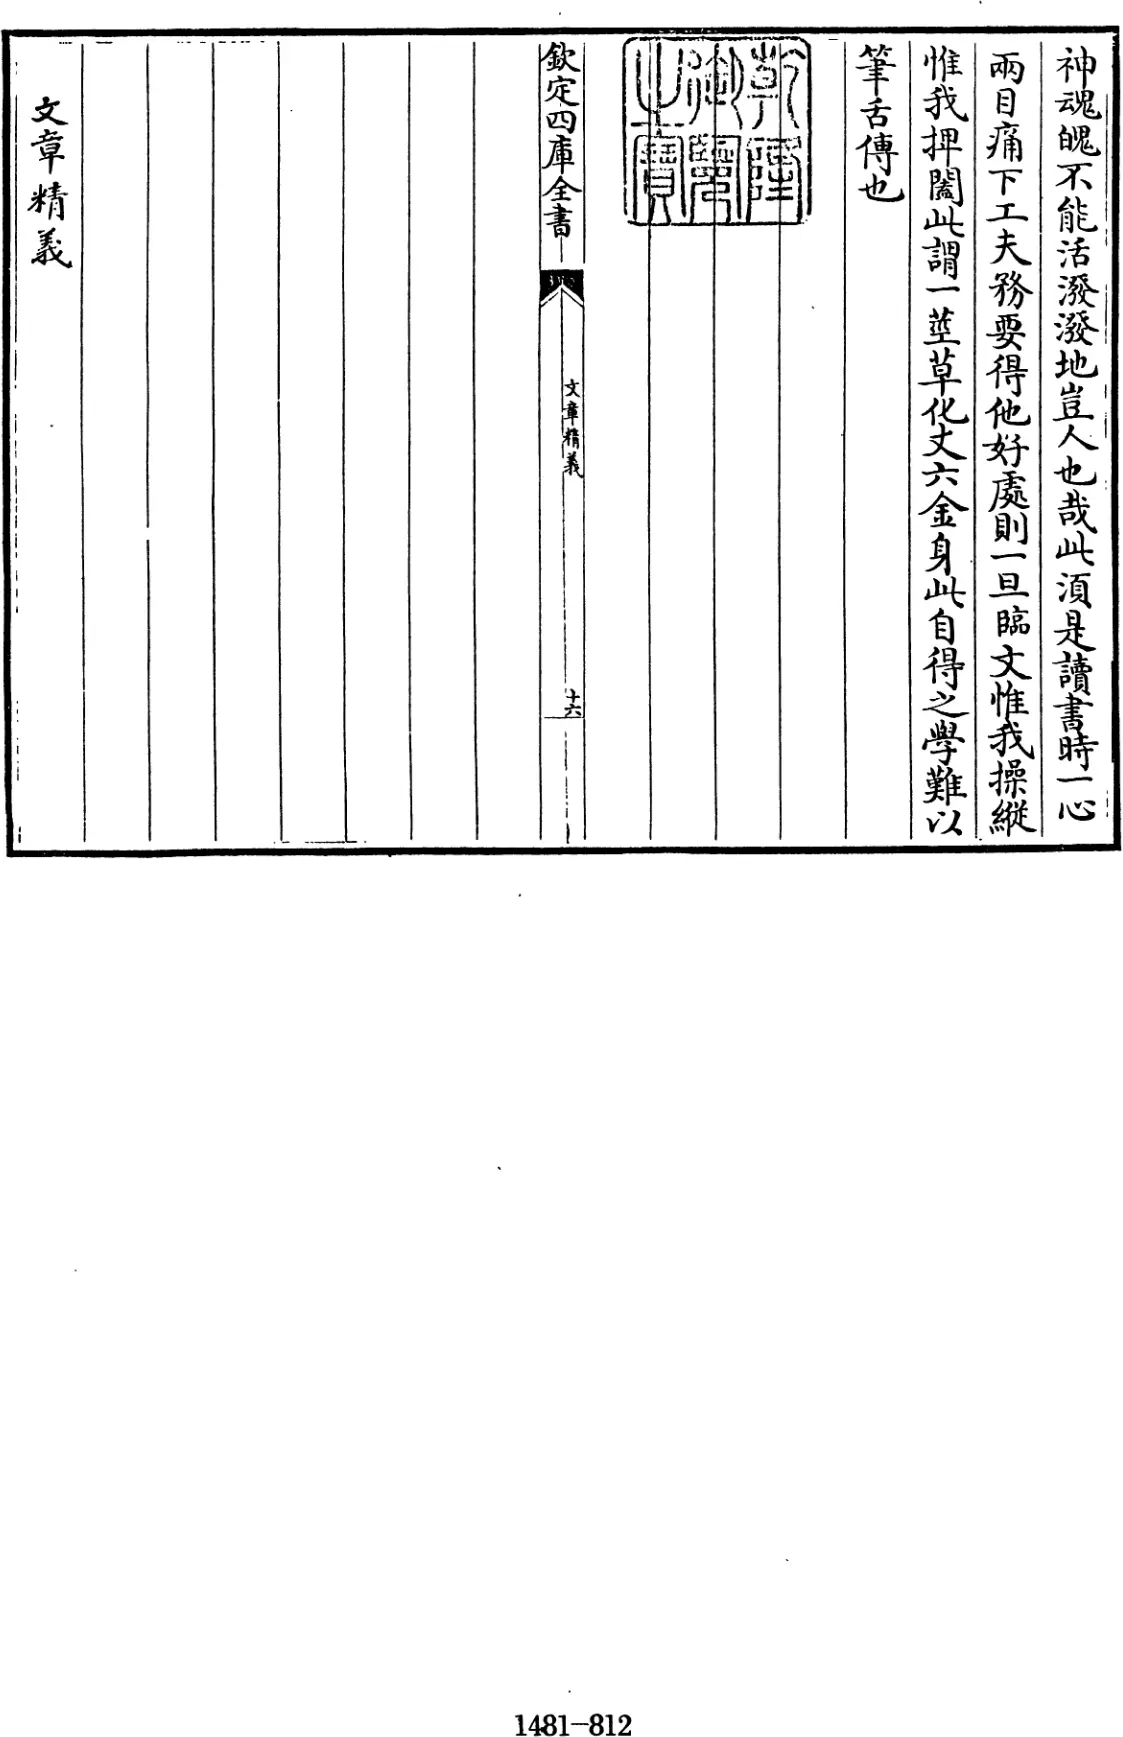 神魂魄不能活潑潑地豈人也哉此須是讀書時一心
兩目痛下工夫務要得他好處則一旦臨文惟我操縱
惟我捭闔此謂一莖草化丈六金身此自得之學難以
筆舌傳也
乾隆御覽之寶
欽定四庫全書
文章精義
十六
文章精義
1481-812